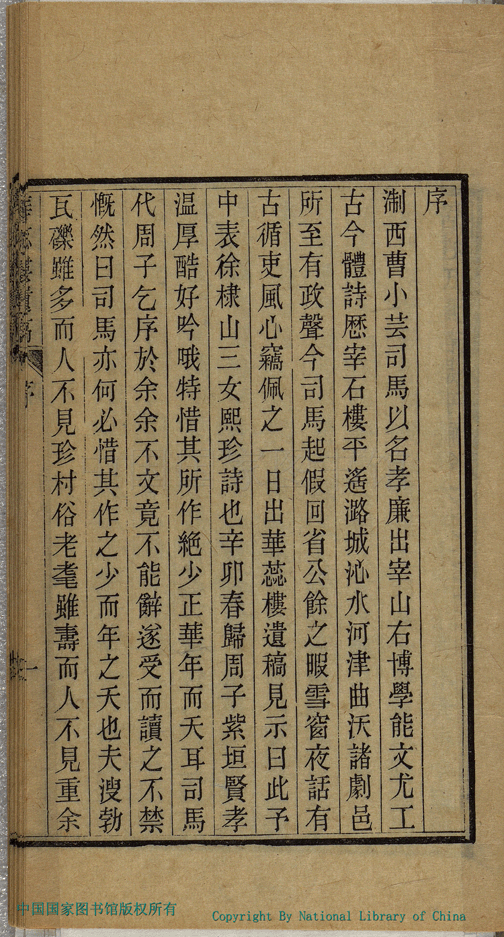 序
淛西曹小芸司馬以名孝廉出宰山右博學能文尤工
古今體詩歷宰石樓平遙潞城沁水河津曲沃諸劇邑
所至有政聲今司馬起假回省公餘之暇雪窗夜話有
古循吏風心竊佩之一日出華蕊樓遺稿見示曰此予
中表徐棣山三女熙珍詩也辛卯春歸周子紫垣賢孝
溫厚酷好吟哦特惜其所作絕少正華年而夭耳司馬
代周子乞序於余余不文竟不能辭遂受而讀之不禁
慨然曰司馬亦何必惜其作之少而年之夭也夫溲勃
瓦礫雖多而人不見珍村俗老耄雖壽而人不見重余
華蕊樓遺稿
序
一
中国国家图书馆版权所有
Copyright By National Library of China